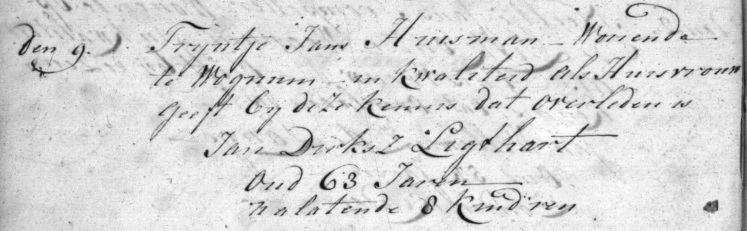 den 9. Tryntje Jans Huisman - Wonende
te Wognum - in kwaliteid als Huisvrouw
geeft by deze kennis dat overleden is
Jan Dirksz Ligthart
Oud 63 Jaren
nalatende 8 kindren